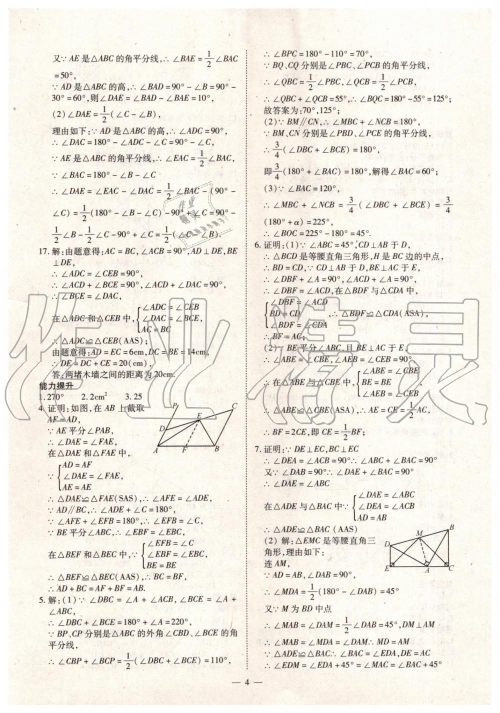 又∵AE 是△ABC 的角平分线,∴∠BAE=1/2∠BAC
=50°,
∵AD 是△ABC 的高,∴∠BAD=90°-∠B=90°-
30°=60°,则∠DAE=∠BAD-∠BAE=10°,
(2)∠DAE=1/2(∠C-∠B),
理由如下:∵AD 是△ABC 的高,∴∠ADC=90°,
∴∠DAC=180°-∠ADC-∠C=90°-∠C,
∵AE 是△ABC 的角平分线,∴∠EAC=1/2∠BAC,
∵∠BAC=180°-∠B-∠C
∴∠DAE=∠EAC-∠DAC=1/2∠BAC-(90°-
∠C)=1/2(180°-∠B-∠C)-90°+∠C=90°-
1/2∠B-1/2∠C-90°+∠C=1/2(∠C-∠B).
17.解:由题意得:AC=BC,∠ACB=90°,AD⊥DE,BE
⊥DE,
∴∠ADC=∠CEB=90°,
∴∠ACD+∠BCE=90°,∠ACD+∠DAC=90°,
∴∠BCE=∠DAC,
在△ADC 和△CEB 中,{∠ADC=∠CEB
∠DAC=∠BCE,
AC=BC
∴△ADC≌△CEB(AAS);
由题意得:AD=EC=6cm,DC=BE=14cm,
∴DE=DC+CE=20(cm),
答:两堵木墙之间的距离为 20cm.
能力提升
1.270° 2.2cm² 3.25
4.证明:如图,在 AB 上截取
AF=AD,
∵AE 平分∠PAB,
∴∠DAE=∠FAE,
在△DAE 和△FAE 中
∵{AD=AF
∠DAE=∠FAE,
AE=AE
∴△DAE≌△FAE(SAS),∴∠AFE=∠ADE,
∵AD∥BC,∴∠ADE+∠C=180°,
∵∠AFE+∠EFB=180°,∴∠EFB=∠C,
∵BE 平分∠ABC,∴∠EBF=∠EBC,
在△BEF 和△BEC 中,∵{∠EFB=∠C
∠EBF=∠EBC,
BE=BE
∴△BEF≌△BEC(AAS),∴BC=BF,
∴AD+BC=AF+BF=AB.
5.解:(1)∵∠DBC=∠A+∠ACB,∠BCE=∠A+
∠ABC,
∴∠DBC+∠BCE=180°+∠A=220°,
∵BP、CP 分别是△ABC 的外角∠CBD、∠BCE 的角
平分线,
∴∠CBP+∠BCP=1/2(∠DBC+∠BCE)=110°,
∴∠BPC=180°-110°=70°,
∵BQ、CQ 分别是∠PBC、∠PCB 的角平分线,
∴∠QBC=1/2∠PBC,∠QCB=1/2∠PCB,
∴∠QBC+∠QCB=55°,∴∠BQC=180°-55°=125°;
故答案为:70°,125°;
(2)∵BM∥CN,∴∠MBC+∠NCB=180°,
∵BM、CN 分别是∠PBD、∠PCE 的角平分线,
∴3/4(∠DBC+∠BCE)=180°,
即3/4(180°+∠BAC)=180°,解得∠BAC=60°;
(3)∵∠BAC=120°,
∴∠MBC+∠NCB=3/4(∠DBC+∠BCE)=3/4
(180°+α)=225°,
∴∠BOC=225°-180°=45°.
6.证明:(1)∵∠ABC=45°,CD⊥AB 于 D,
∴△BCD 是等腰直角三角形,H 是 BC 边的中点,
∴BD=CD,∵CD⊥AB 于 D,BE⊥AC 于 E,
∴∠DBF+∠A=90°,∠ACD+∠A=90°,
∴∠DBF=∠ACD,在△BDF 与△CDA 中,
{∠DBF=∠ACD
BD=CD
∠BDF=∠CDA,∴△BDF≌△CDA(ASA),
∴BF=AC;
(2)∵BE 平分∠ABC,且 BE⊥AC 于 E,
∴∠ABE=∠CBE,∠AEB=∠CEB=90°;
∴在△ABE 与△CBE 中,{∠ABE=∠CBE
BE=BE
∠AEB=∠CEB
∴△ABE≌△CBE(ASA),∴AE=CE=1/2AC,
∴BF=2CE,即 CE=1/2BF;
7.证明:∵DE⊥EC,BC⊥EC
∴∠DEA=∠ACB=90°∴∠ABC+∠BAC=90°
又∵∠DAB=90°∴∠DAE+∠BAC=90°
在△ADE 与△BAC 中∵{∠DAE=∠ABC
∠DEA=∠ACB
AD=AB
∴△ADE≌△BAC(AAS)
(2)解:△EMC 是等腰直角三
角形,理由如下:
连 AM,
∵AD=AB,∠DAB=90°,
∴∠MDA=1/2(180°-∠DAB)=45°
又∵M 为 BD 中点
∴∠MAB=∠DAM=1/2∠DAB=45°,DM⊥AM
∴∠MAB=∠MDA=∠DAM∴MD=AM
∵△ADE≌△BAC∴∠BAC=∠EDA,DE=AC
∴∠EDM=∠EDA+45°=∠MAC=∠BAC+45°
— 4 —